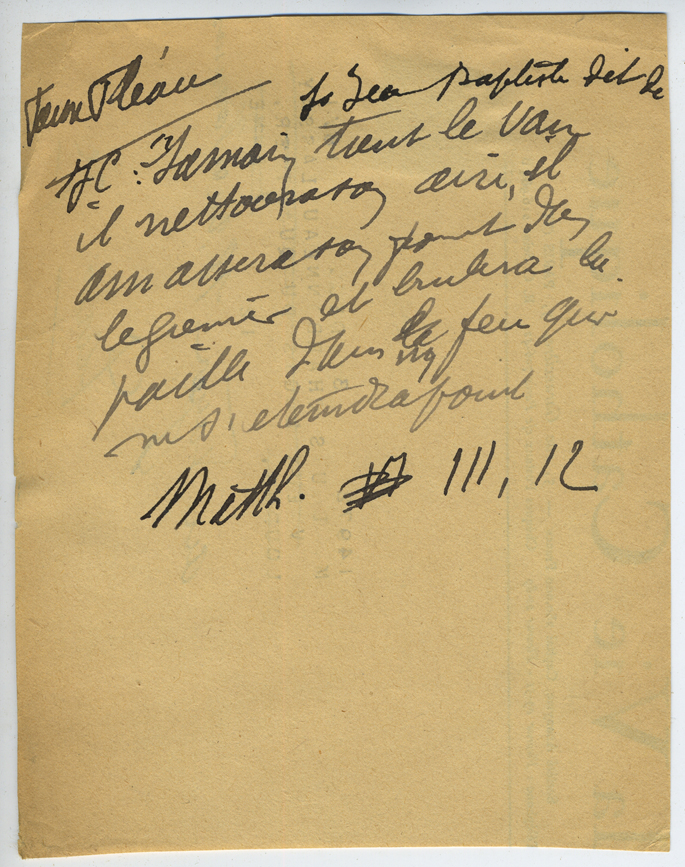 Fléau St Jean Baptiste dit de
JC: Sa main tient le van
il nettoiera son aire, il
amassera son froment dans
le grenier et brulera la
paille dans le feu qui
ne s'éteindra point
Matth. III, 12